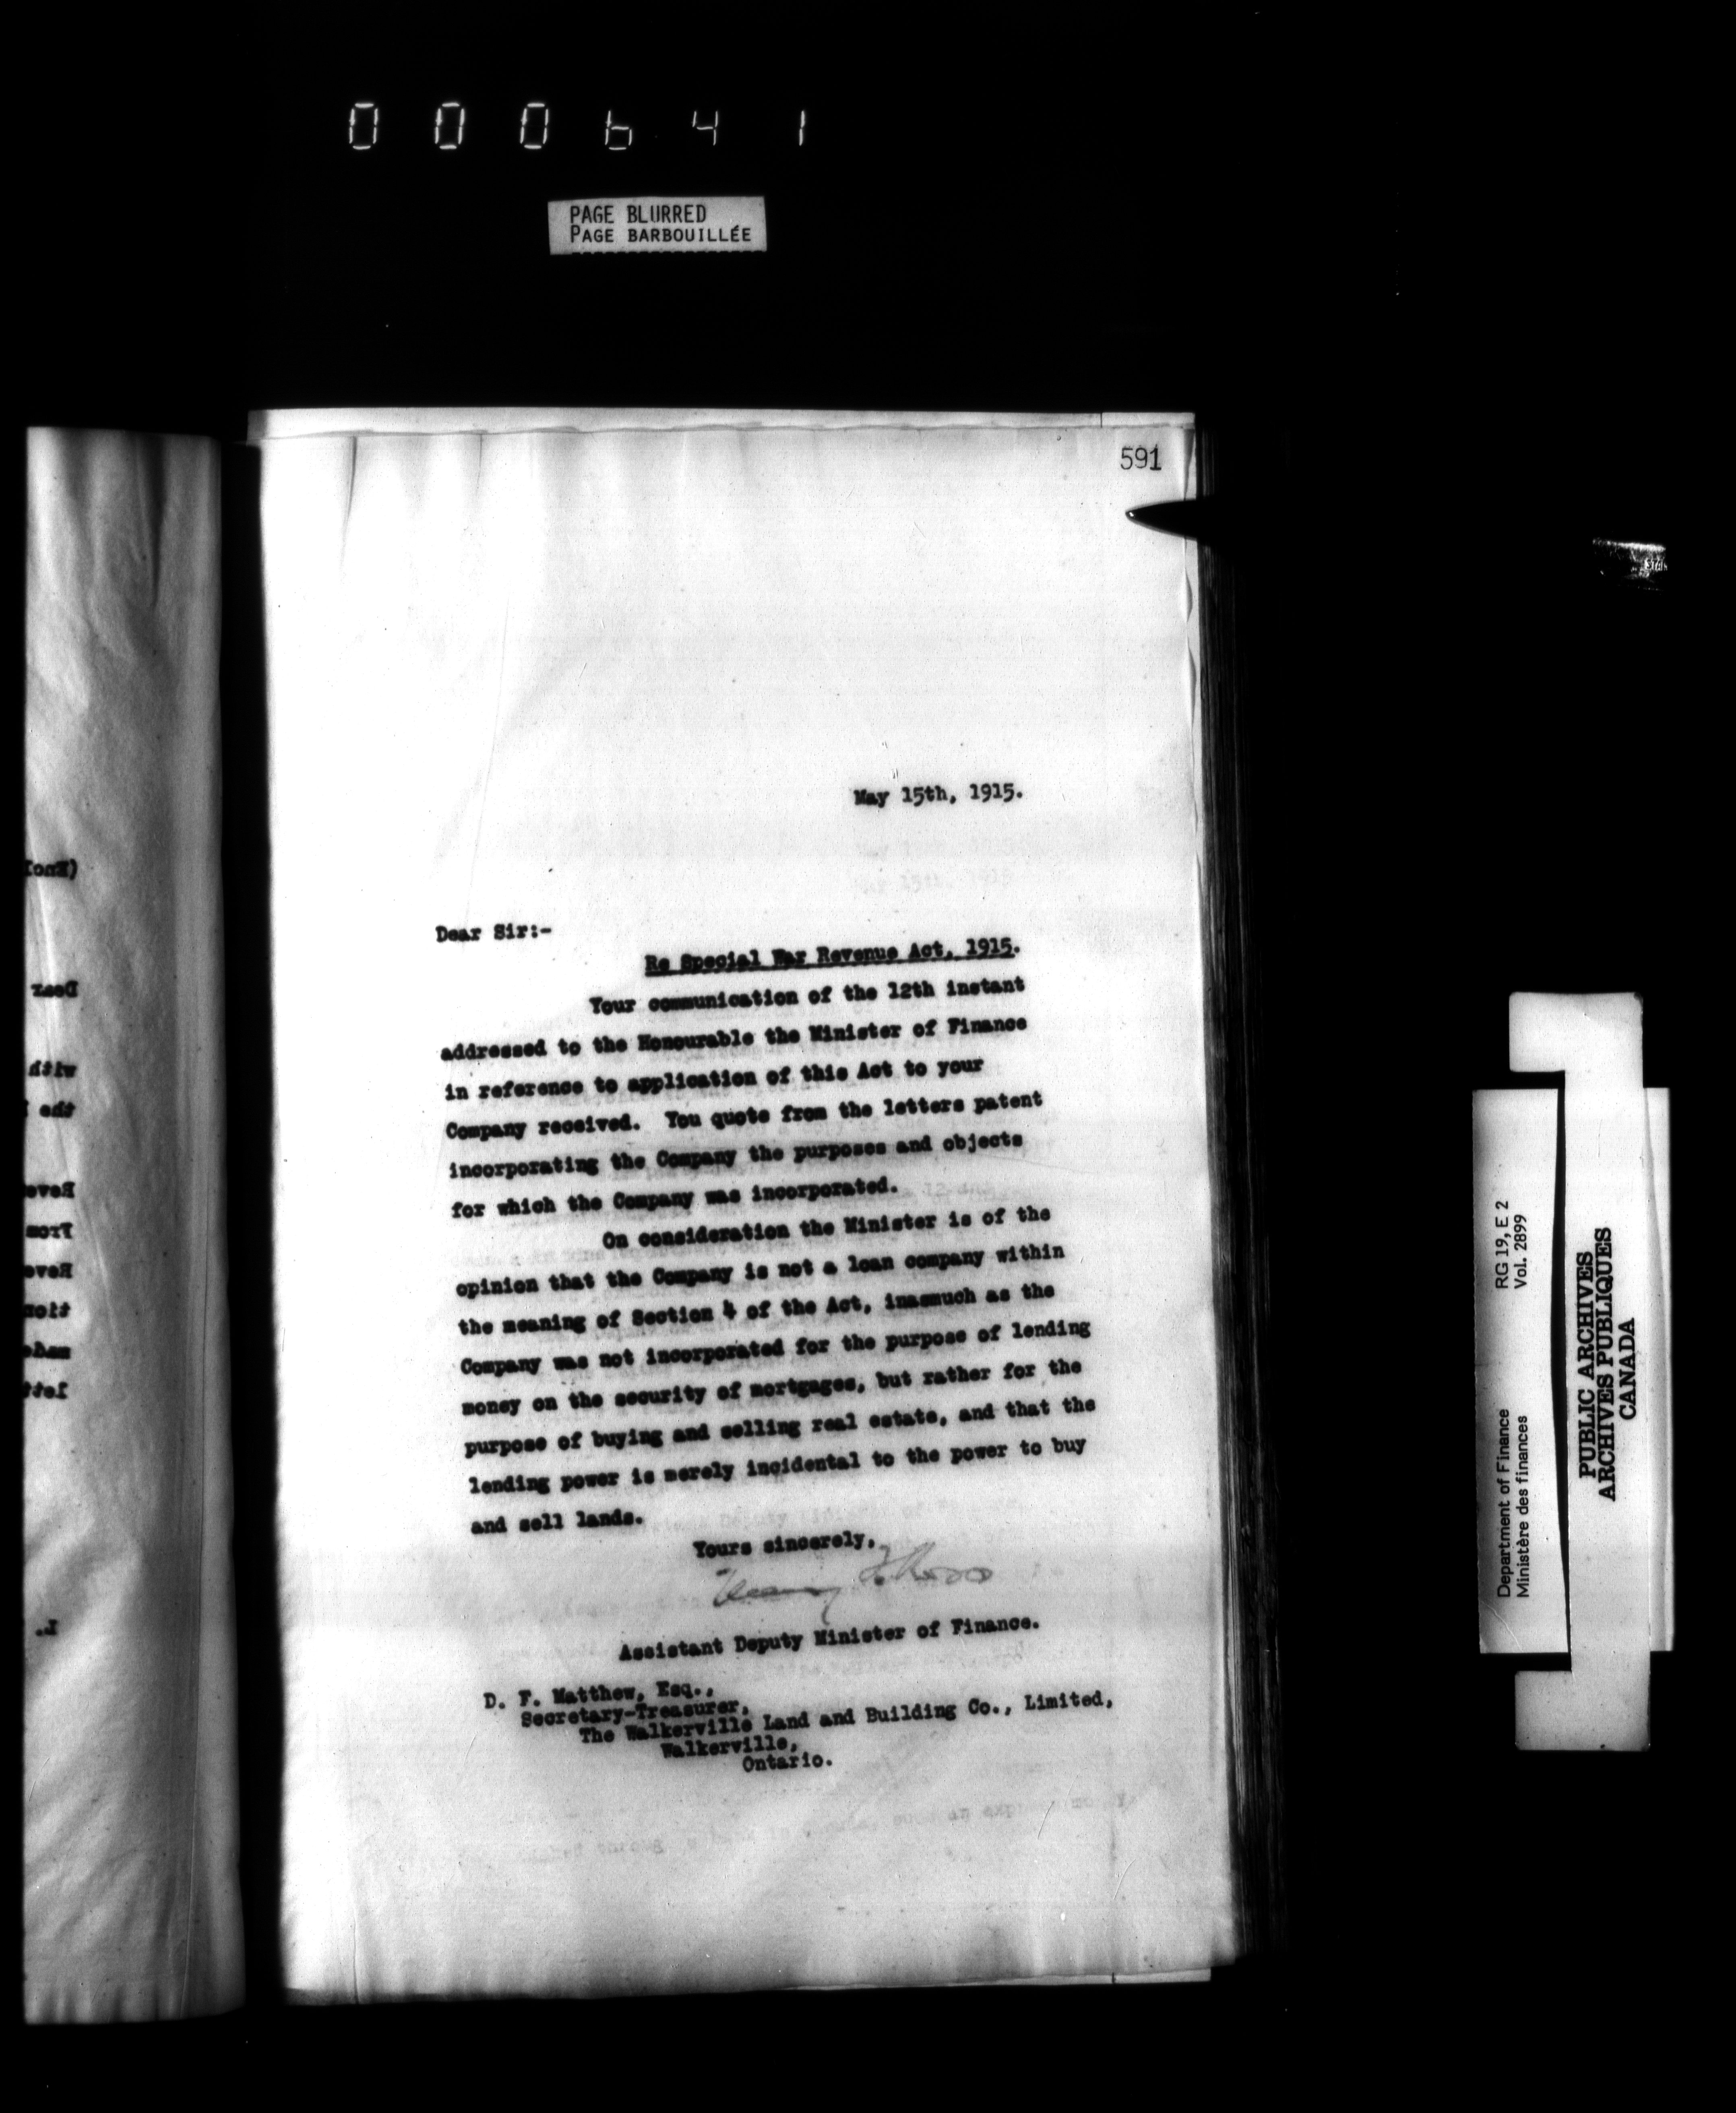 000641
PAGE BLURRED
PAGE BARBOUILLÉE
591
May 15th, 1915.
Dear Sir:-
Re Special War Revenue Act, 1915.
Your communication of the 12th instant
addressed to the Honourable the Minister of Finance
in reference to application of this Act to your
Company received. You quote from the letters patent
incorporating the Company the purposes and objects
for which the Company was incorporated.
On consideration the Minister is of the
opinion that the Company is not a loan company within
the meaning of Section 4 of the Act, inasmuch as the
Company was not incorporated for the purpose of lending
money on the security of mortgages, but rather for the
purpose of buying and selling real estate, and that the
lending power is merely incidental to the power to buy
and sell lands.
Yours sincerely,
Assistant Deputy Minister of Finance.
D. F. Matthew, Esq.,
Secretary-Treasurer,
The Walkerville Land and Building Co., Limited,
Walkerville,
Ontario.
Department of Finance RG 19, E 2
Ministère des finances Vol. 2899
PUBLIC ARCHIVES
ARCHIVES PUBLIQUES
CANADA